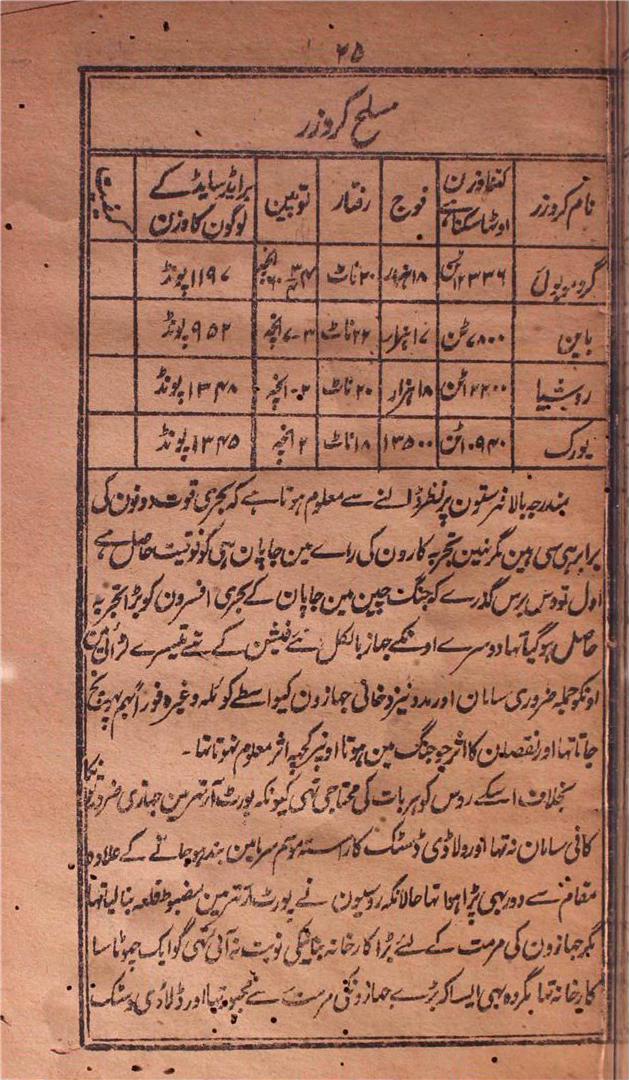 ۲۵
مسلح کروزر
نام کروزر | کتنا وزن اوٹھا سکتا ہے | فوج | رفتار | توپین | براڈ سایڈ کے لوگون کا وزن | کیفیت
گروموبوئی | ۱۲۳۳۶ ٹن | ۱۸ ہزار | ۲۰ ناٹ | انچہ | ۱۱۹۷ پونڈ
باین | ۷۸۰۰ ٹن | ۱۷ ہزار | ۲۲ ناٹ | ۳-۷ انچہ | ۹۵۲ پونڈ
روشیا | ۱۲۲۰۰ ٹن | ۱۸ ہزار | ۲۰ ناٹ | انچہ | ۱۳۴۸ پونڈ
یورک | ۱۰۹۴۰ ٹن | ۱۳۵۰۰ | ۱۸ ناٹ | ۲ انچہ | ۱۳۴۵ پونڈ
مندرجہ بالا فہرستون پر نظر ڈالنے سے معلوم ہوتا ہے کہ بحری قوت دونون کی
برابر ہی سی ہین مگر تجربہ کارون کی راے مین جاپان ہی کو فوقیت حاصل ہے
اول تو دس برس گذرے کہ جنگ چین مین جاپان کے بحری افسرون کو بڑا تجربہ
حاصل ہو گیا تہا دوسرے اونکے جہاز بالکل نئے فیشن کے تہے تیسرے لڑائی مین
اونکو جملہ ضروری سامان اور مدد نیز دخانی جہازون کیواسطے کوئلہ وغیرہ فوراً بہم پہونچ
جاتا تہا اور نقصان کا اثر جو جنگ مین ہوتا اونپر کچہہ اثر معلوم نہوتا تہا ۔
بخلاف اسکے روس کو ہر بات کی محتاجی تہی کیونکہ پورٹ آرتھر مین جہازی ضرورتونکا
کافی سامان نہ تہا اور ولاڈی وسٹک کا راستہ موسم سرما مین بند ہو جانے کے علاوہ
مقام سے دور بہی پڑا ہوا تہا حالانکہ روسیون نے پورٹ آرتھر مین مضبوط قلعہ بنا لیا تہا
مگر جہازون کی مرمت کے لئے بڑا کارخانہ بنانیکی نوبت نہ آئی تہی گو ایک چہوٹا سا
کارخانہ تہا مگر وہ بہی ایسا کہ بڑے جہازونکی مرمت سے مجبور تہا اور ولاڈی وسٹک